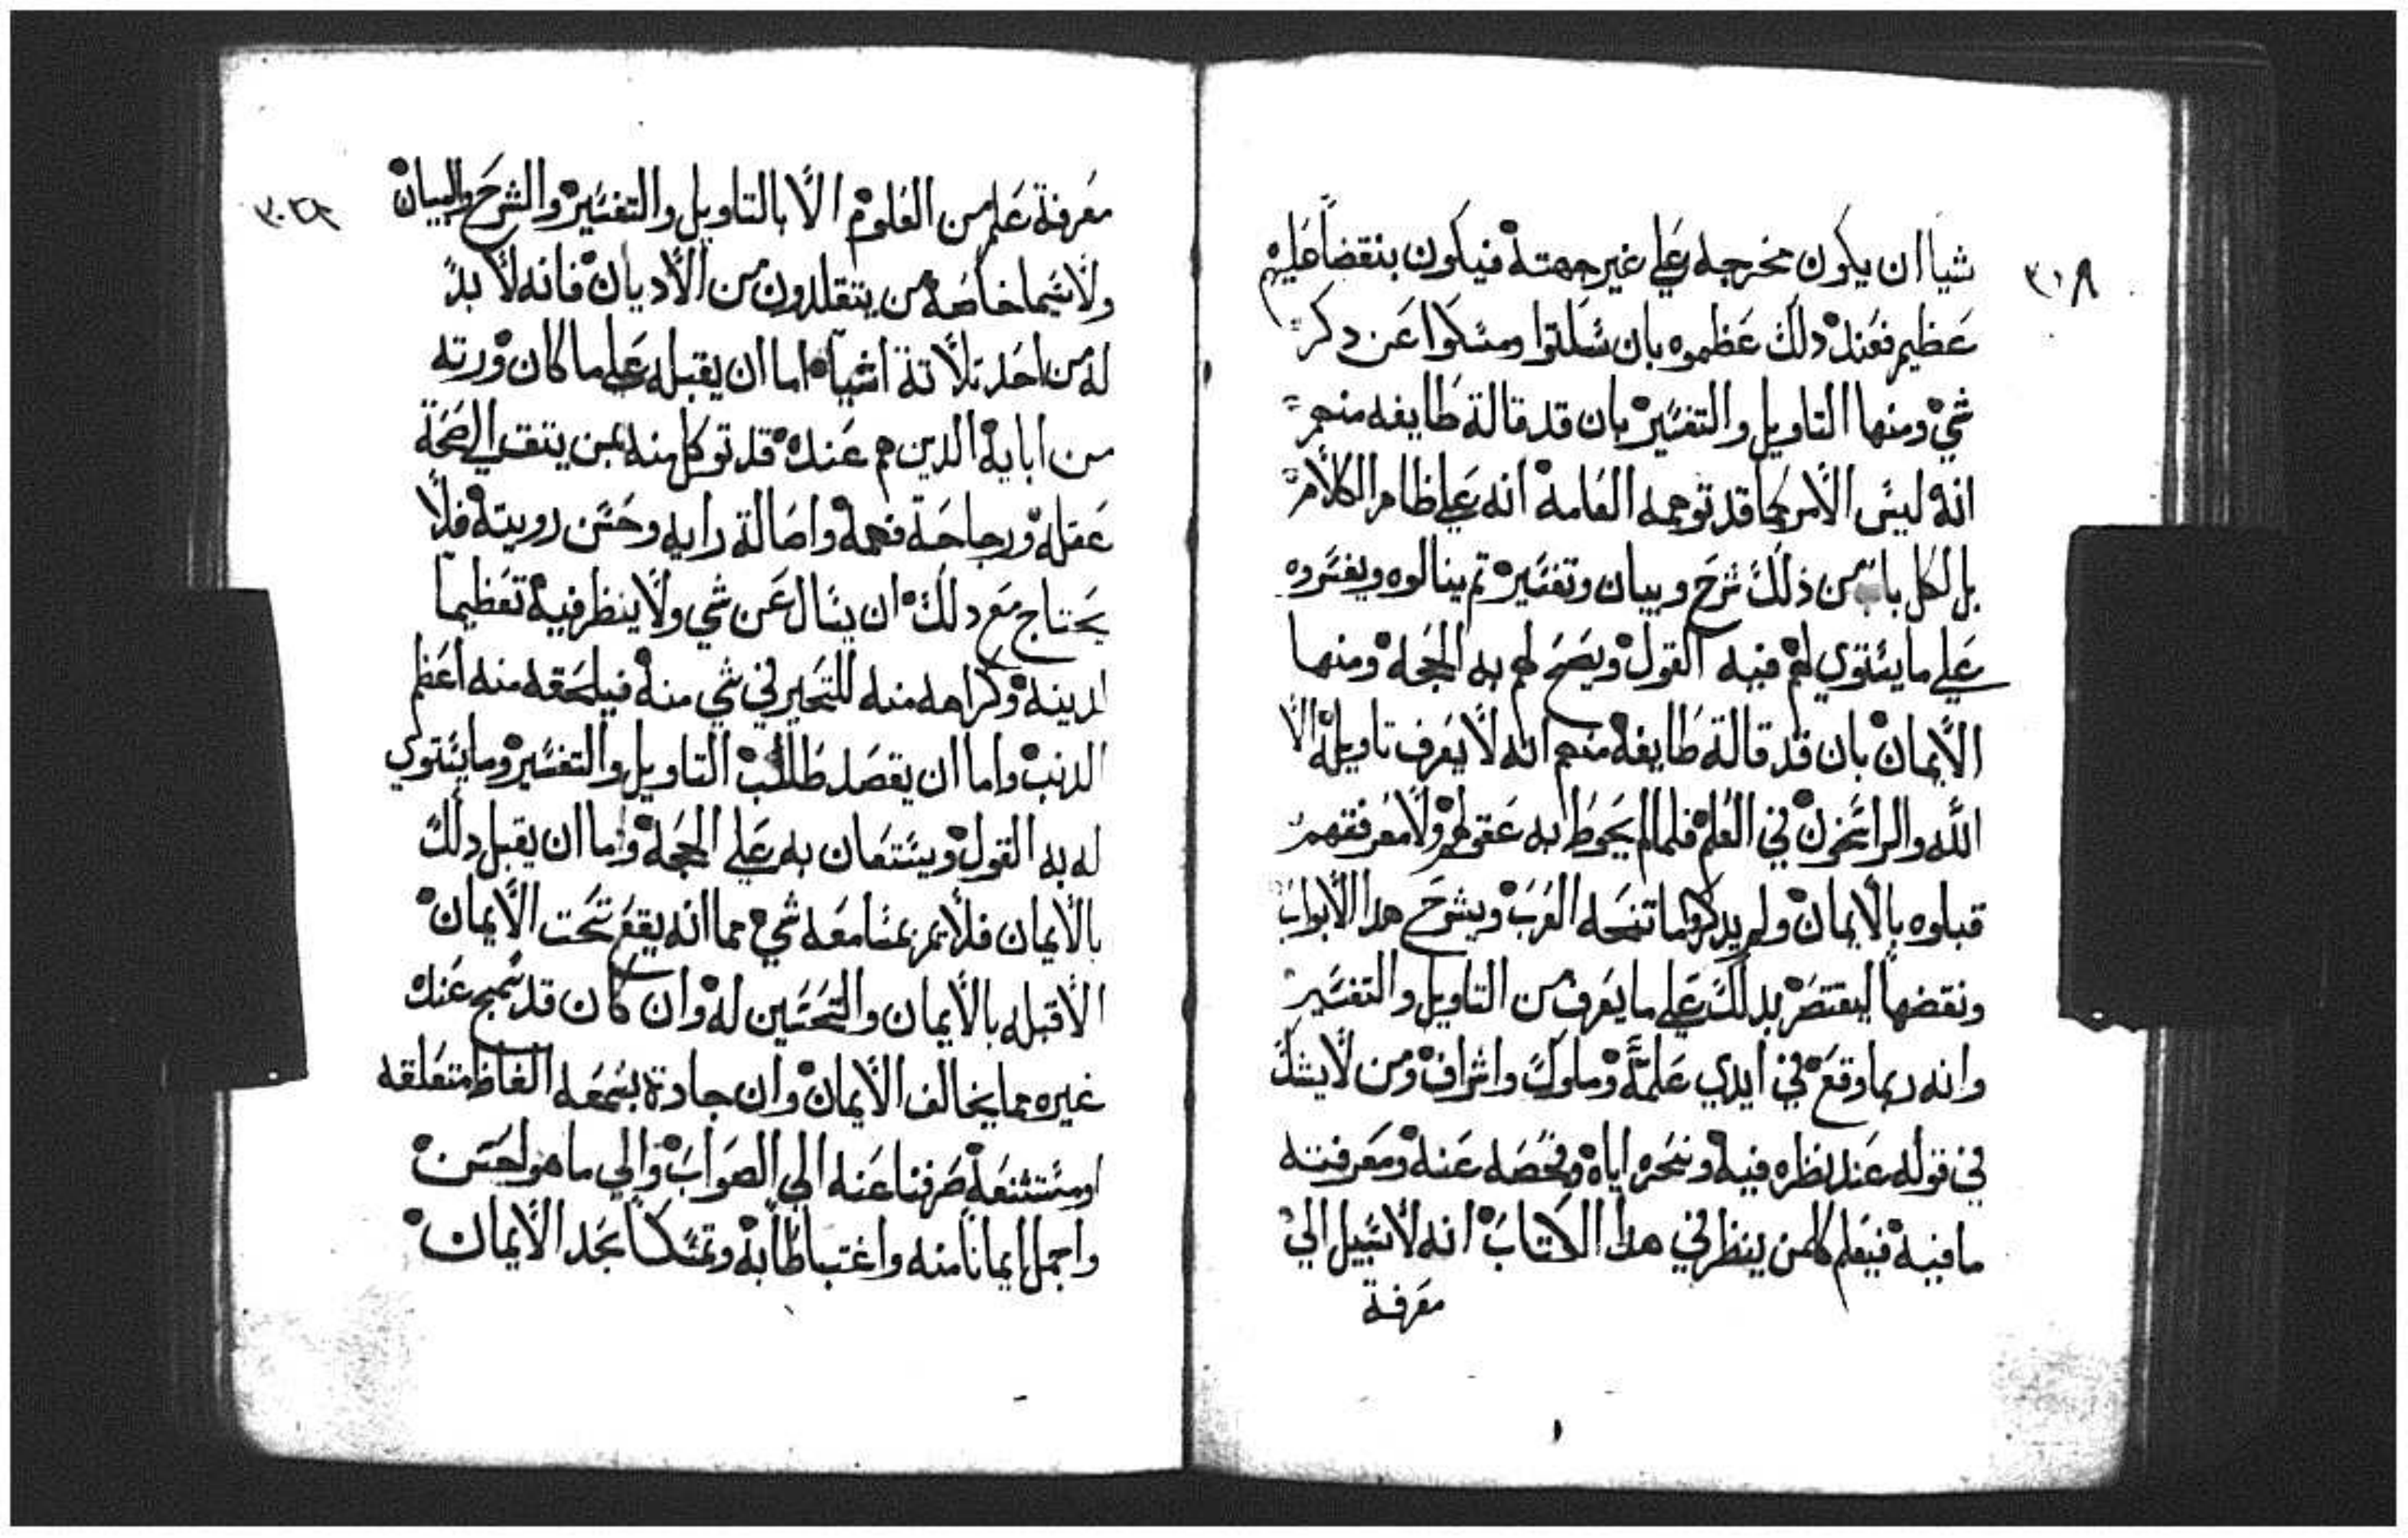 شيا ان يكون مخرجه علي غير جهته فيكون بنقضا عليهم
عظيم فعند دلك عظموه بان سكتوا ومسكوا عن دكر
شي ومنها التاويل والتفسير بان قد قالة طايفه منهم
انه ليس الامر كما قد توهمه العامة انه علي ظاهر الكلام
بل لكل باب من ذلك شرح وبيان وتفسير تم ينالوه ويفسروه
علي ما يستوي لهم فيه القول ويصح لهم به الحجه ومنها
الايمان بان قد قالة طايفه منهم انه لا يعرف تاويله الا
الله والراسخون في العلم فلما لم يحوط به عقولهم ولا معرفتهم
قبلوه بالايمان ولم يدكر فيما تنسخه العرب ويشرح هدا الابواب
ونقضها ليقتصر بدلك علي ما يعرف من التاويل والتفسير
وانه ربما وقع في ايدي علمة وملوك واشراف ومن لا يشك
في قوله عند نظره فيه وتبحره اياه وفحصه عنه ومعرفته
ما فيه فيعلم كلمن ينظر في هدا الكتاب انه لا سبيل الي
معرفة
٣١٨
معرفة علم من العلوم الا بالتاويل والتفسير والشرح والبيان
ولا سيما خاصه من يتقلدون من الاديان فانه لا بد
له من احد تلاتة اشياه اما ان يقبله علي ما كان ورته
من ابايه الدين هم عنده قد توكل منه بمن يتق الي صحة
عقله ورجاحة فهمه واصالة رايه وحسن رويته فلا
يحتاج مع دلك ان يسال عن شي ولا ينظر فيه تعظيما
لدينه وكراهه منه للتحير في شي منه فيلحقه منه اعظم
الدنب واما ان يقصد طلب التاويل والتفسير وما يستوي
له به القول ويستعان به علي الحجه واما ان يقبل دلك
بالايمان فلا يمر بمسامعه شي مما انه يقع تحت الايمان
الا قبله بالايمان والتحسين له وان كان قد سمج عند
غيره مما يخالف الايمان وان جادة بسمعه الفاظ متعلقه
او مستشنعه صرفنا عنه الي الصواب والي ما هو احسن
واجمل ايمانا منه واغتباطا به وتمسكا بحد الايمان